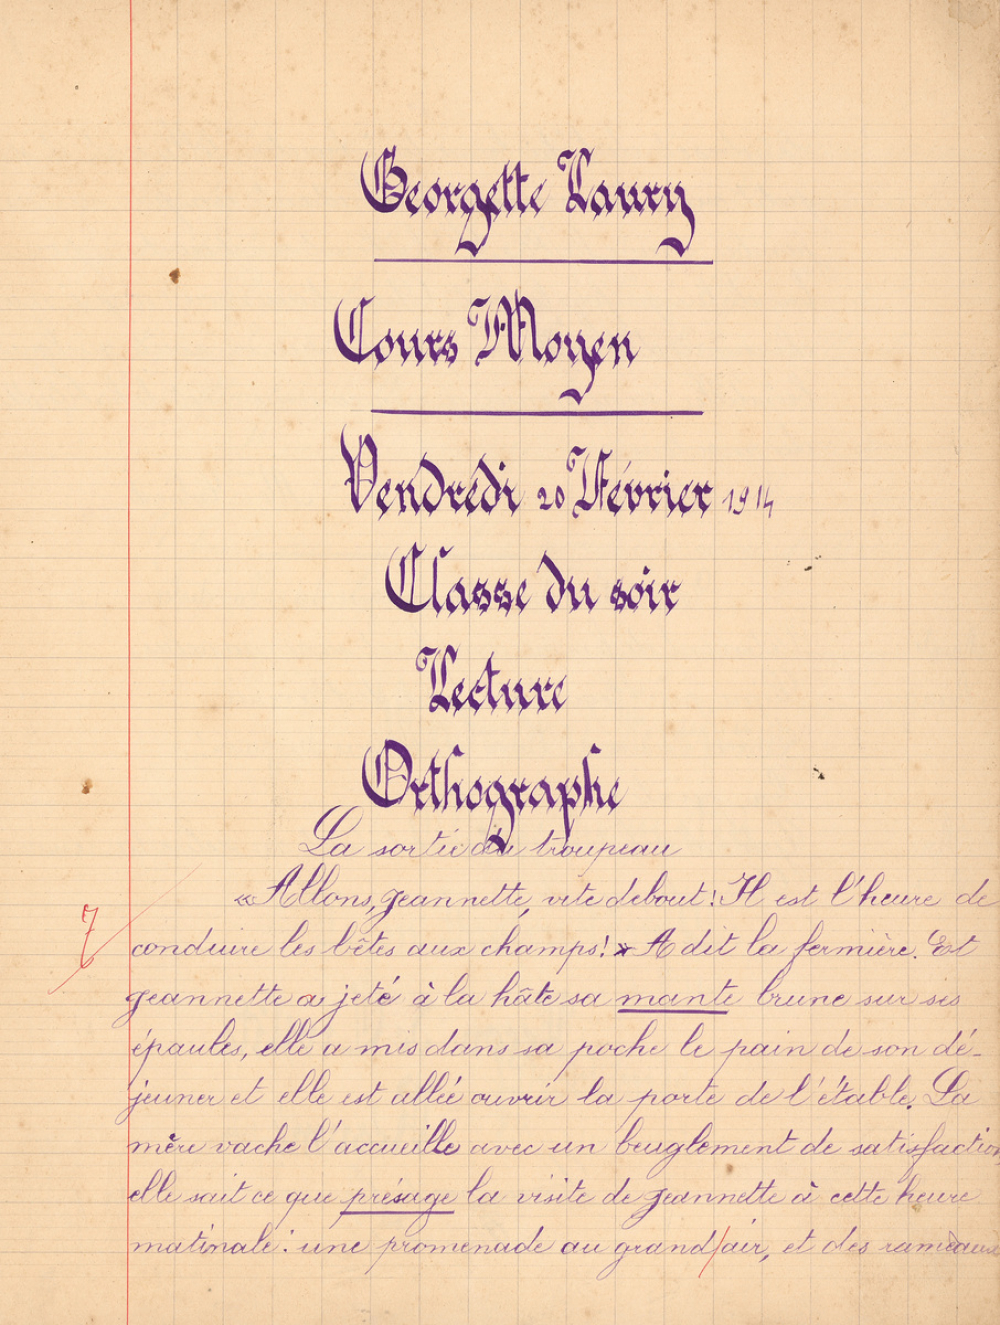 Georgette Laury
Cours Moyen
Vendredi 20 Février 1914
Classe du soir
Lecture
Orthographe
La sortie du troupeau
« Allons, Jeannette, vite debout ! Il est l'heure de
7
conduire les bêtes aux champs ! » A dit la fermière. Et
Jeannette a jeté à la hâte sa mante brune sur ses
épaules, elle a mis dans sa poche le pain de son dé-
jeuner et elle est allée ouvrir la porte de l'étable. La
mère vache l'accueille avec un beuglement de satisfaction
elle sait ce que présage la visite de Jeannette à cette heure
matinale : une promenade au grand/air, et des rameaux